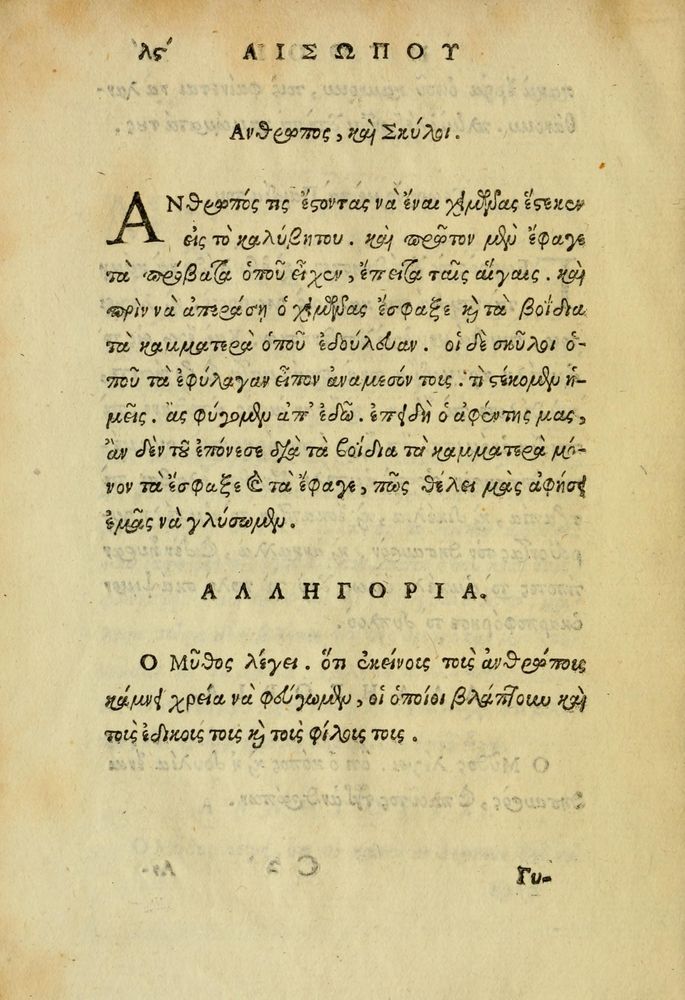 λς΄ ΑΙΣΩΠΟΥ
Ανθρωπος, καὶ Σκύλοι.
ΑΝθρωπός τις ἔςοντας νὰ ἔναι χειμῶνας ἔςεκεν
εἰς τὸ καλύβητου. καὶ πρῶτον μὲν ἔφαγε
τὰ πρόβατα ὁποῦ εἶχεν, ἔπειτα ταῖς αἴγαις. καὶ
πρὶν νὰ ἀπεράσῃ ὁ χειμῶνας ἔσφαξε κὶ τὰ βοΐδια
τὰ καμματερὰ ὁποῦ ἐδούλευαν. οἱ δὲ σκῦλοι ὁ-
ποῦ τὰ ἐφύλαγαν εἶπον ἀναμεσόν τοις. τὶ ςέκομεν ἡ-
μεῖς. ἂς φύγομεν ἀπ᾽ ἐδῶ. ἐπειδὴ ὁ ἀφέντης μας,
ἂν δὲν τοῦ ἐπόνεσε διὰ τὰ βοΐδια τὰ καμματερὰ μό-
νον τὰ ἔσφαξε καὶ τὰ ἔφαγε, πῶς θέλει μᾶς ἀφήσει
ἐμᾶς νὰ γλύσωμεν.
ΑΛΛΗΓΟΡΙΑ.
Ο Μῦθος λέγει. ὅτι ἐκείνοις τοῖς ἀνθρώποις
κάμνει χρεία νὰ φεύγωμεν, οἱ ὁποίοι βλάπτουν καὶ
τοῖς ἐδικοις τοις κὶ τοῖς φίλοις τοις.
Γυ-